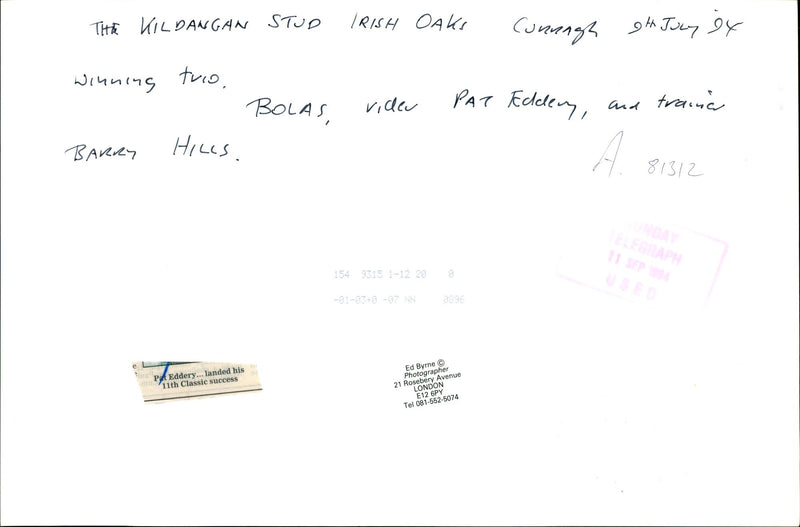 THE KILDANGAN STUD IRISH OAKS CURRAGH 9th JULY '94
Winning trio.
BOLAS, rider PAT Eddery, and trainer
BARRY HILLS.
A. 81312
SUNDAY
TELEGRAPH
11 SEP 1994
USED
154 9315 1-12 20 0
-01-03+0 -07 NN 0096
Pat Eddery... landed his
11th Classic success
Ed Byrne ©
Photographer
21 Rosebery Avenue
LONDON
E12 6PY
Tel 081-552-5074